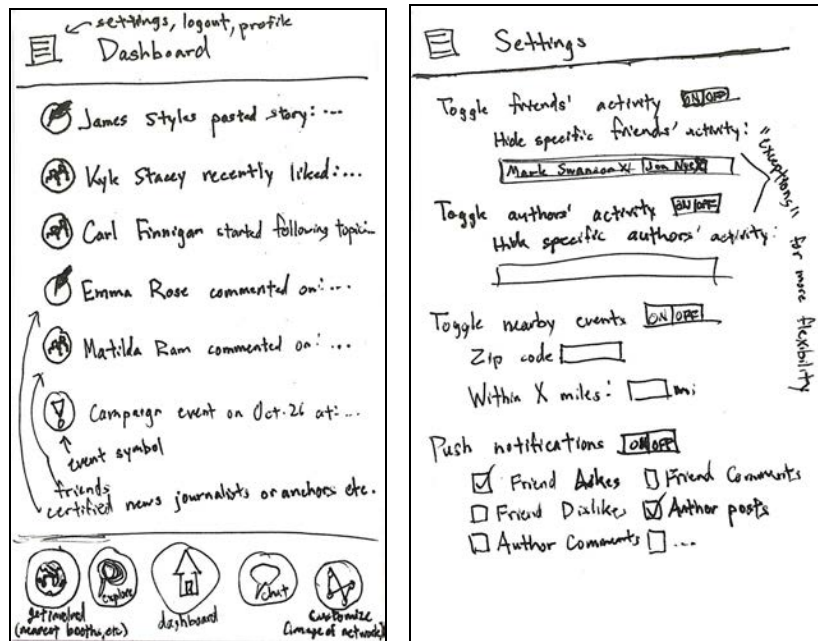 settings, logout, profile
Dashboard
James Styles posted story: ...
Kyle Stacey recently liked: ...
Carl Finnigan started following topic...
Emma Rose commented on: ...
Matilda Ram commented on: ...
Campaign event on Oct. 26 at: ...
event symbol
friends
certified news journalists or anchors etc.
get involved
(nearest booths, etc)
explore
dashboard
chat
customize
(image of network)
Settings
Toggle friends' activity ON OFF
Hide specific friends' activity:
Mark Swanson X Jon Nye X
Toggle authors' activity ON OFF
Hide specific authors' activity:
"exceptions" for more flexibility
Toggle nearby events ON OFF
Zip code
Within X miles: mi
Push notifications ON OFF
Friend Likes Friend Comments
Friend Dislikes Author posts
Author Comments ...